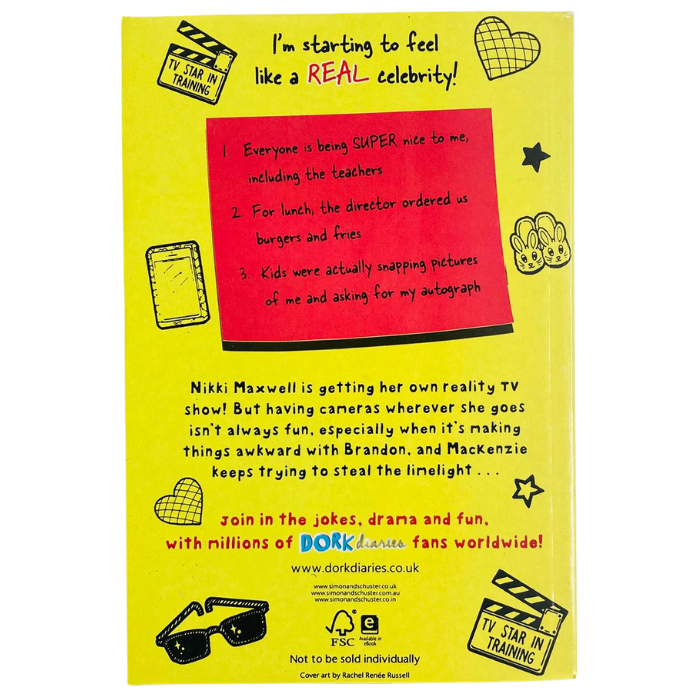 I'm starting to feel
like a REAL celebrity!
TV STAR IN
TRAINING
1 Everyone is being SUPER nice to me,
including the teachers
2. For lunch, the director ordered us
burgers and fries
3. Kids were actually snapping pictures
of me and asking for my autograph
Nikki Maxwell is getting her own reality TV
show! But having cameras wherever she goes
isn't always fun, especially when it's making
things awkward with Brandon, and MacKenzie
keeps trying to steal the limelight . . .
Join in the jokes, drama and fun,
with millions of DORK diaries fans worldwide!
www.dorkdiaries.co.uk
www.simonandschuster.co.uk
www.simonandschuster.com.au
www.simonandschuster.co.in
FSC
e
Available in
eBook
TV STAR IN
TRAINING
Not to be sold individually
Cover art by Rachel Renée Russell